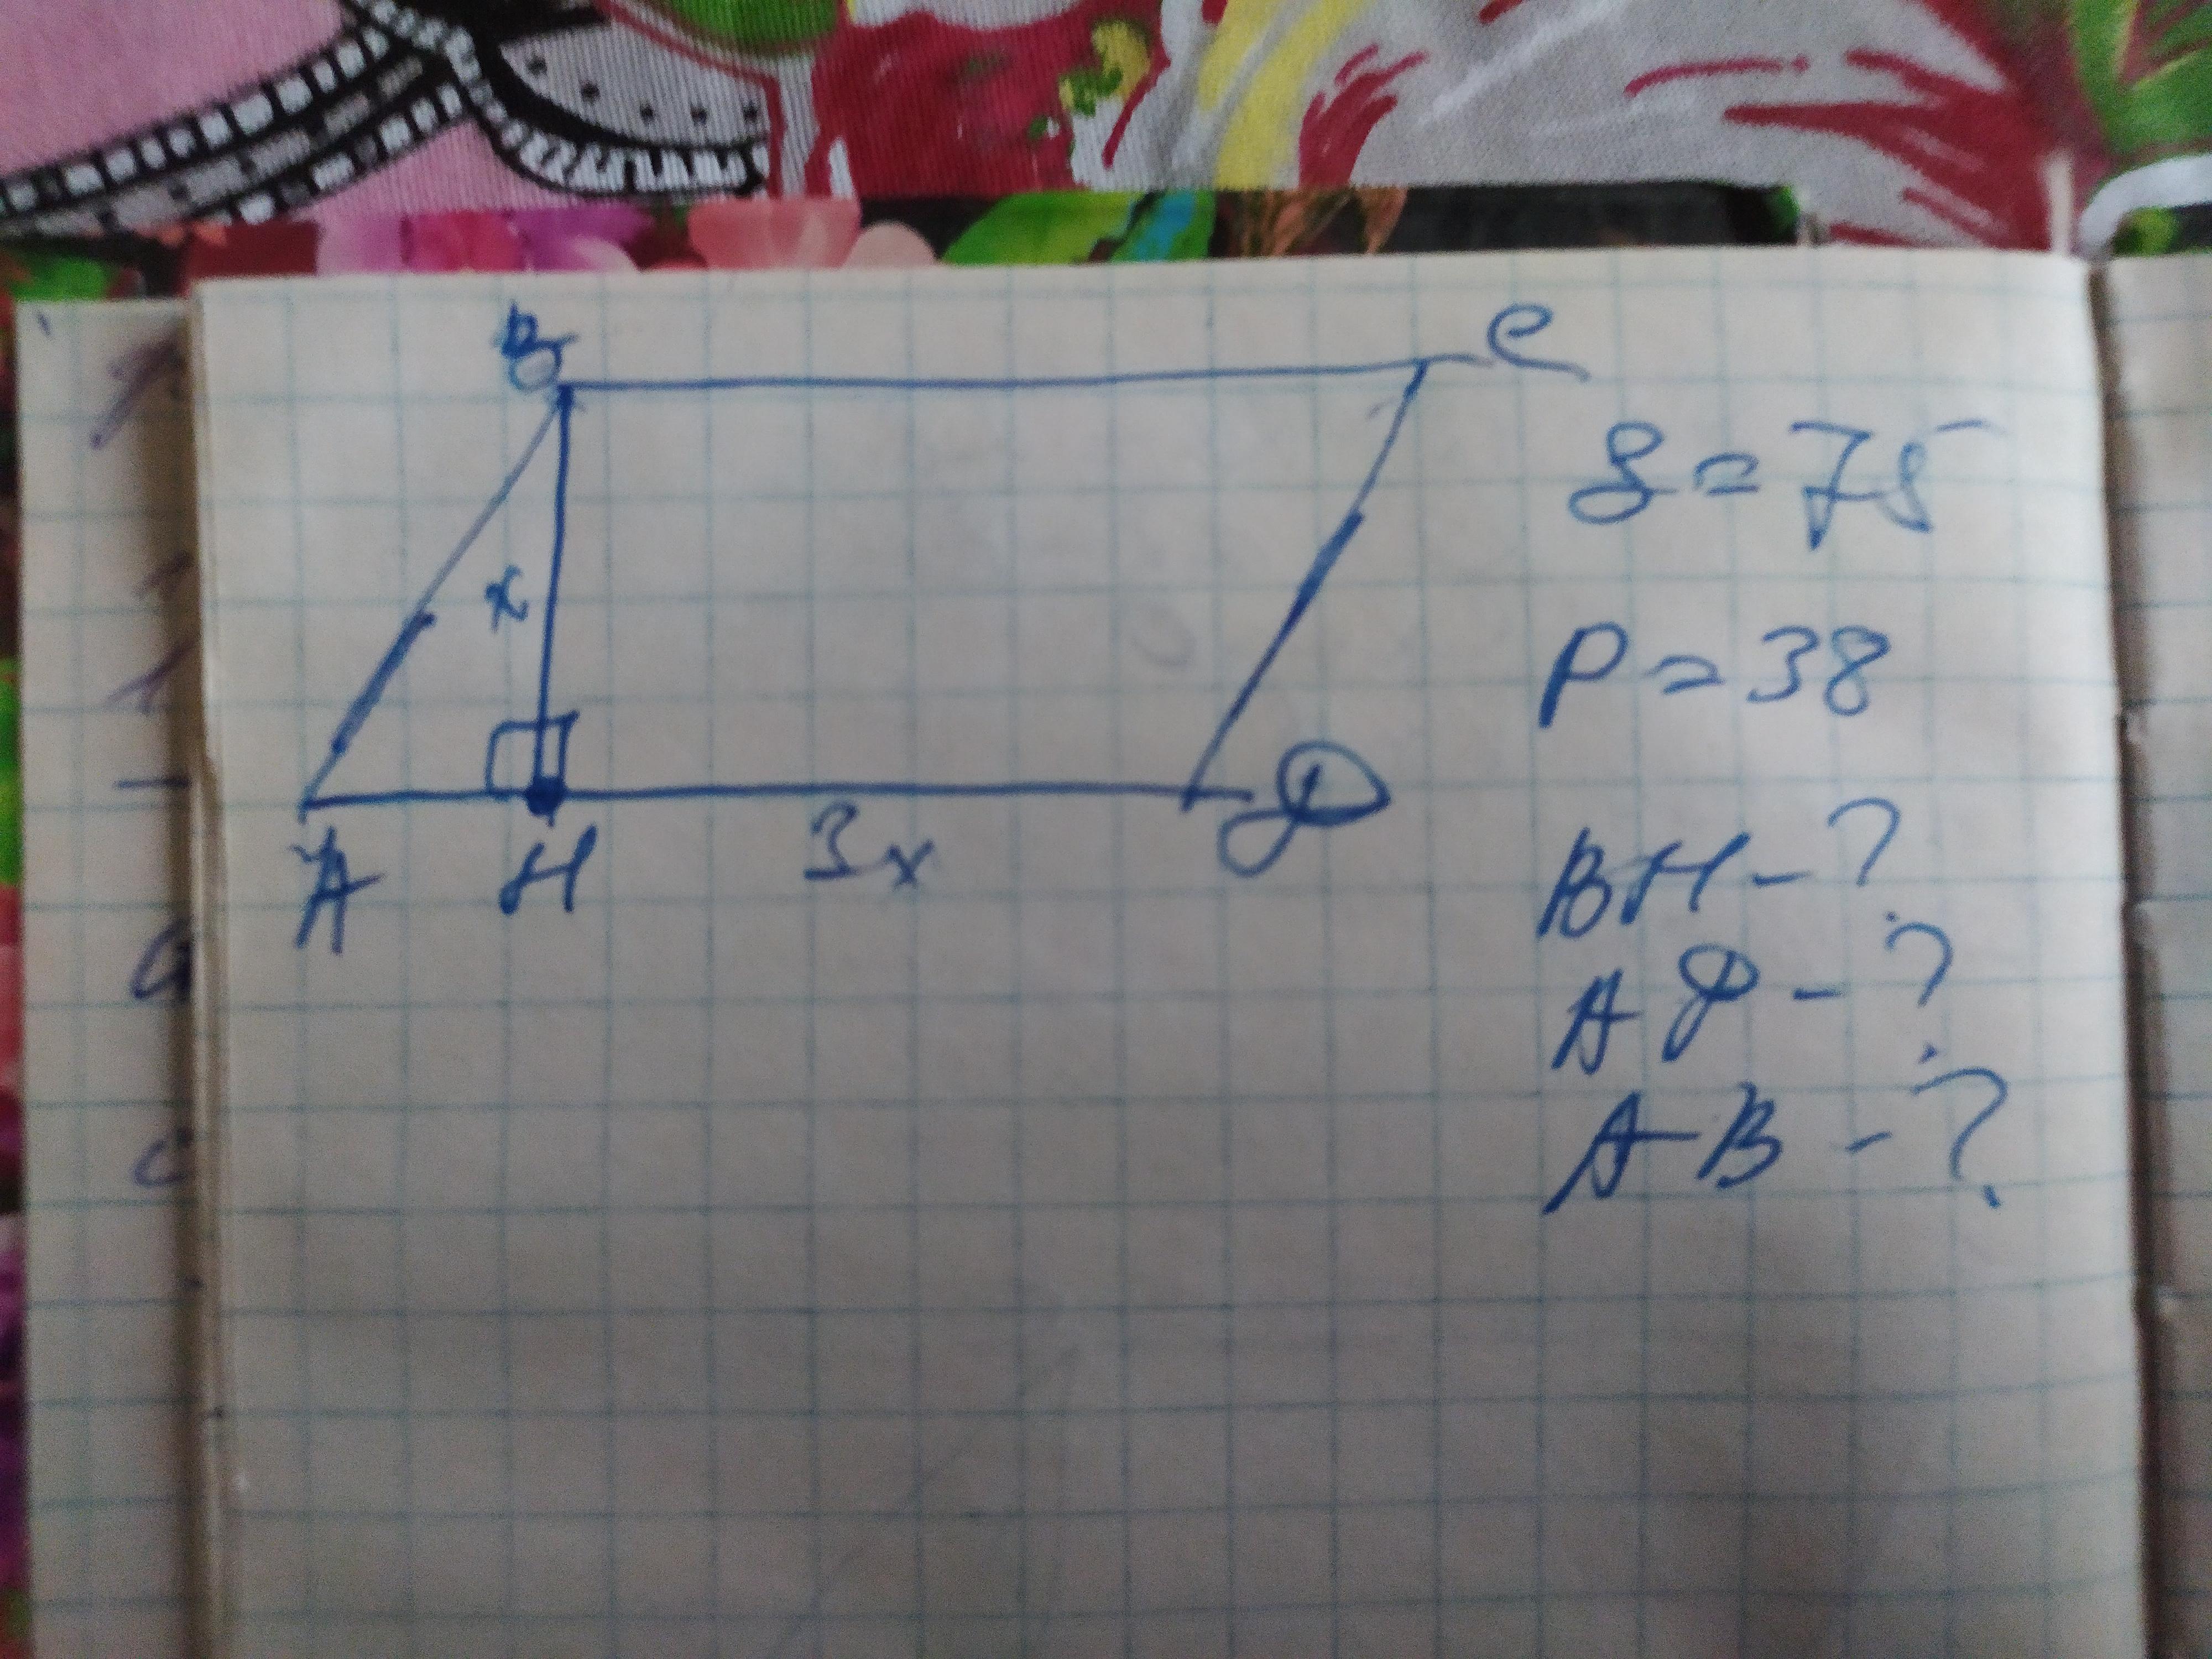 B C
x
A H 3x D
S = 75
P = 38
BH - ?
AD - ?
AB - ?